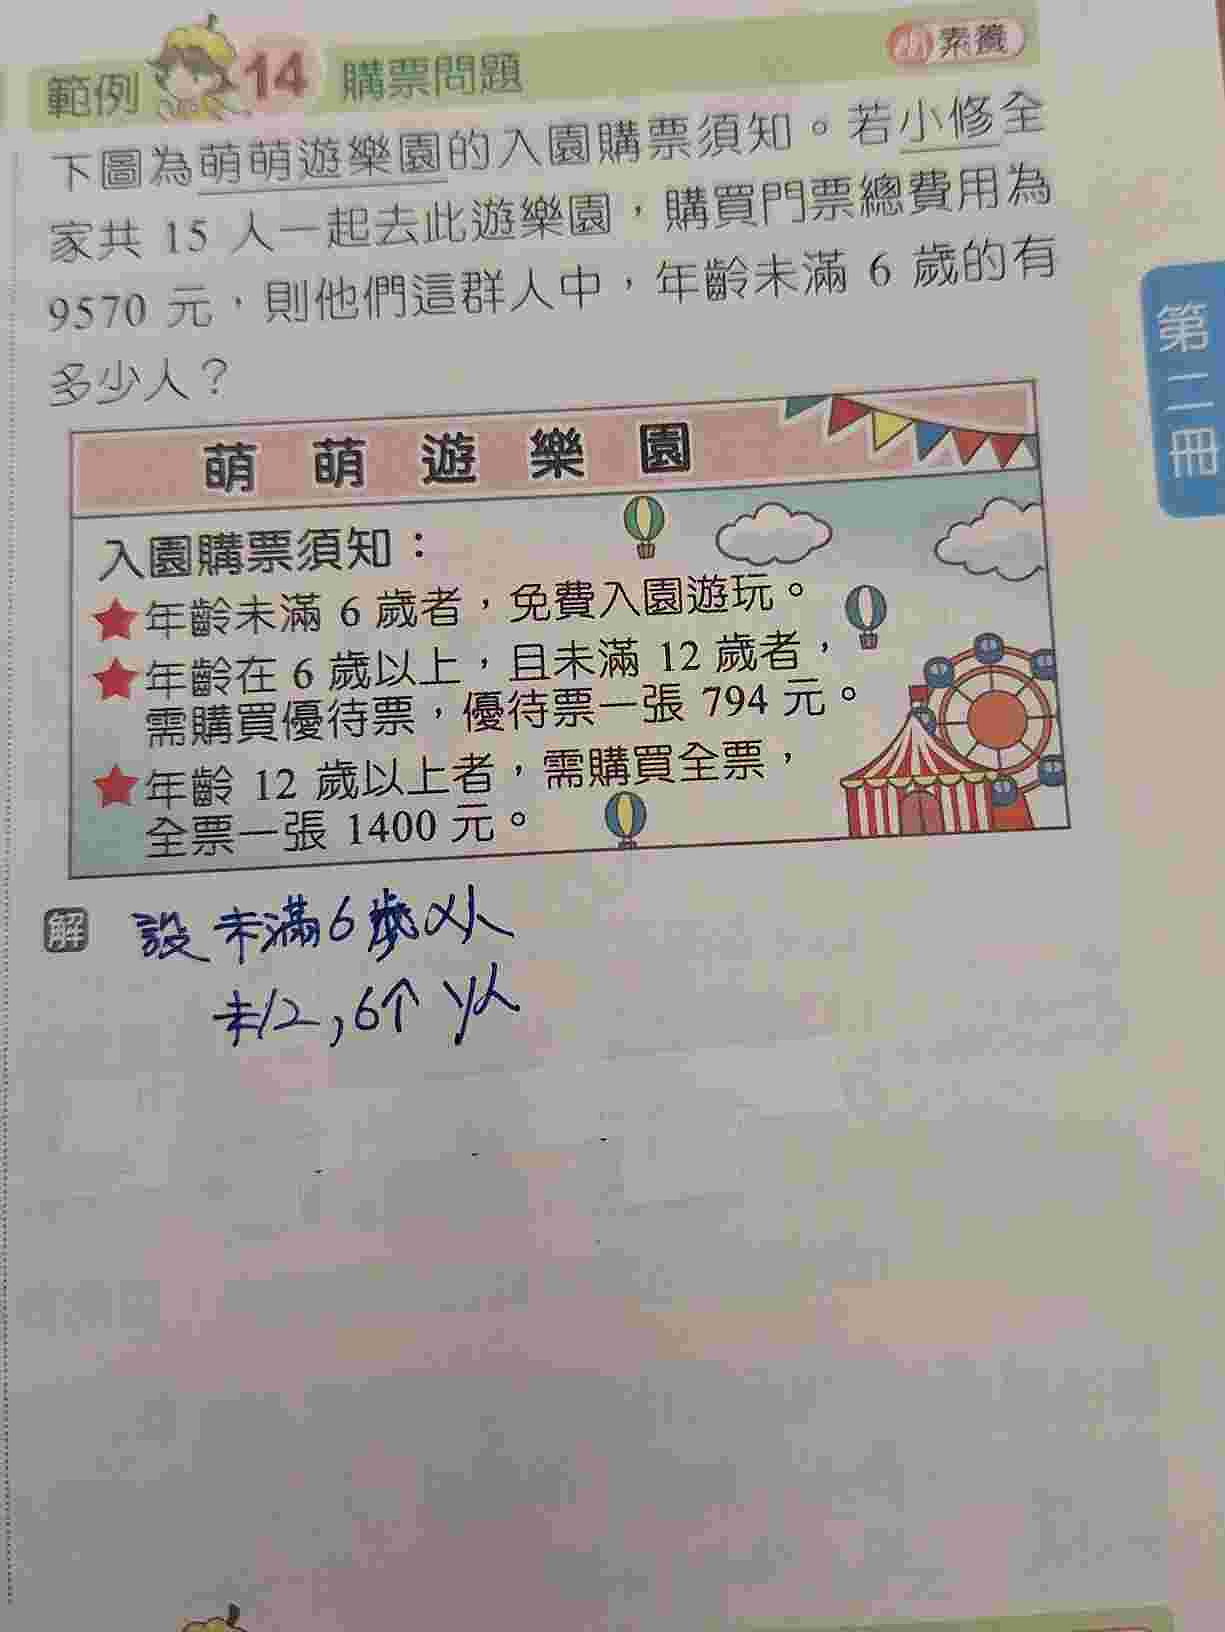 範例 14 購票問題 素養
下圖為萌萌遊樂園的入園購票須知。若小修全
家共 15 人一起去此遊樂園，購買門票總費用為
9570 元，則他們這群人中，年齡未滿 6 歲的有
多少人？
萌萌遊樂園
入園購票須知：
★年齡未滿 6 歲者，免費入園遊玩。
★年齡在 6 歲以上，且未滿 12 歲者，
需購買優待票，優待票一張 794 元。
★年齡 12 歲以上者，需購買全票，
全票一張 1400 元。
解 設未滿6歲x人
未12,6个 y人
第二冊